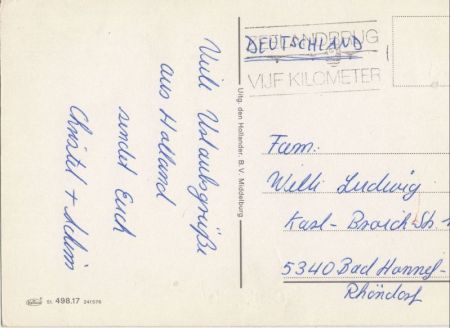 Viele Urlaubsgrüße
aus Holland
sendet Euch
Christel + Achim
Uitg. den Hollander, B. V. Middelburg
St. 498.17 241576
ZEELANDBRUG
VIJF KILOMETER
DEUTSCHLAND
Fam.
Willi Ludwig
Karl-Broich-Str.
5340 Bad Honnef-
Rhöndorf